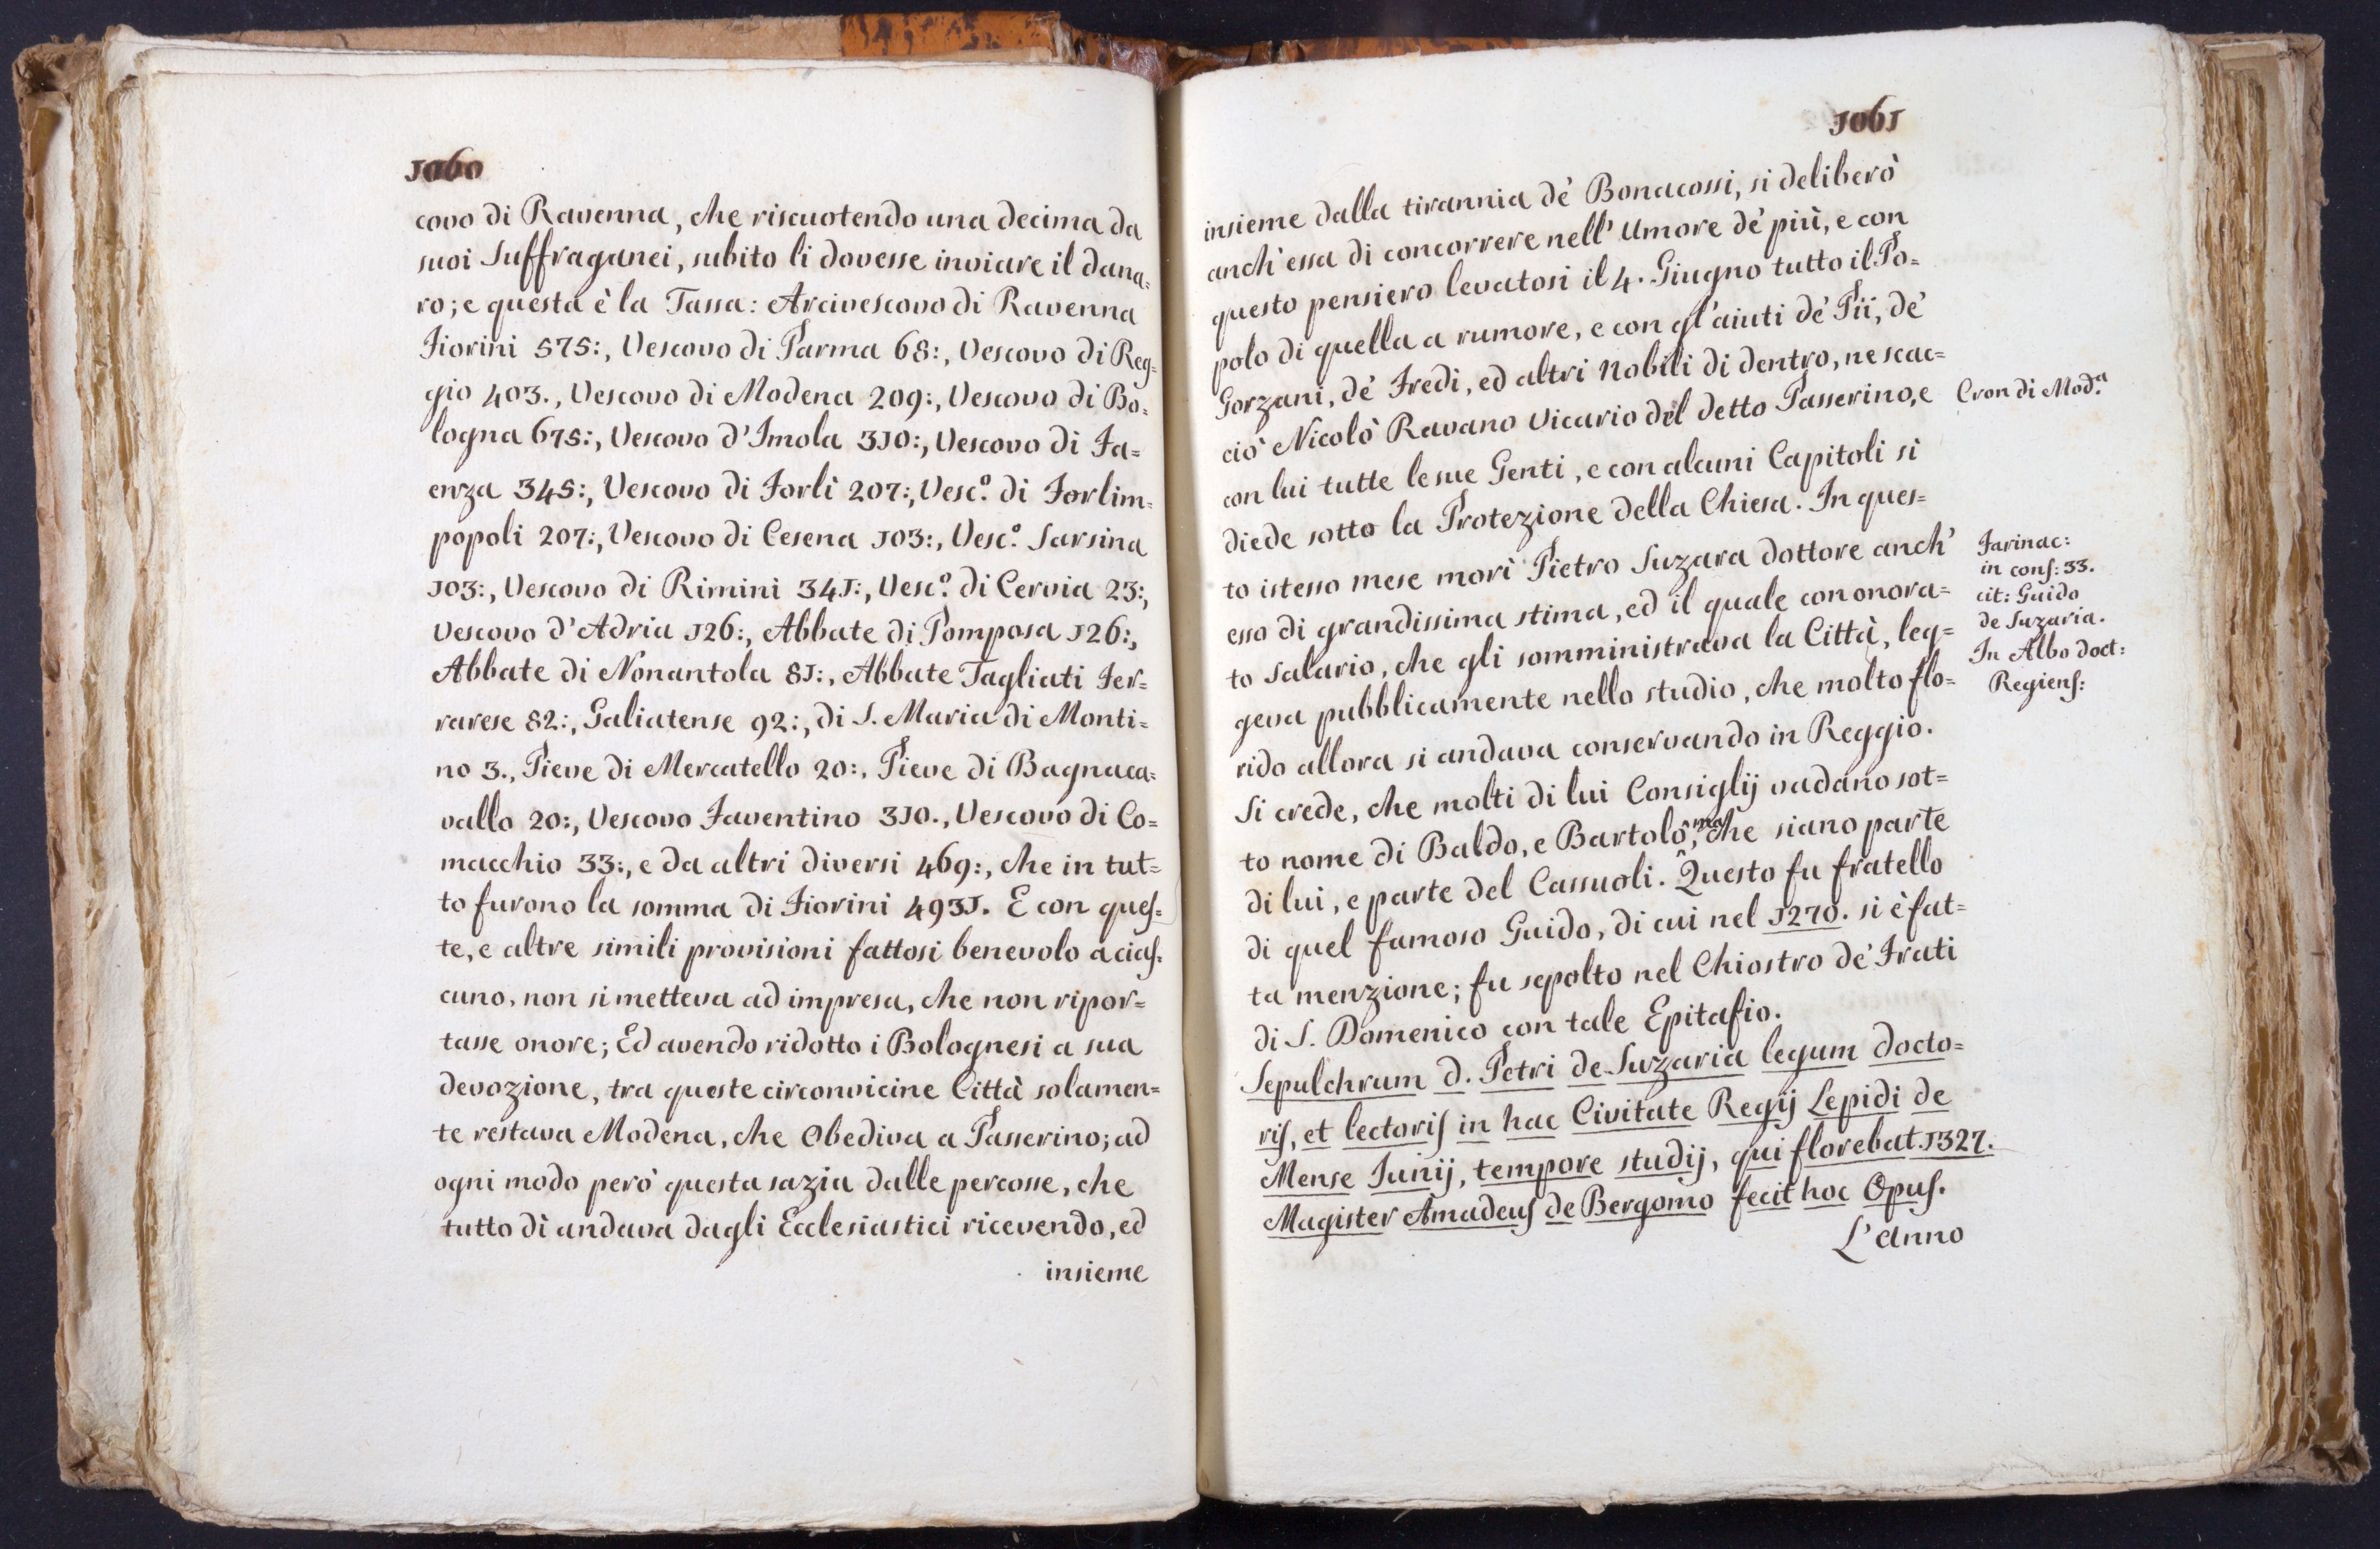 1060
covo di Ravenna, che riscuotendo una decima da
suoi Suffraganei, subito li dovesse inviare il dana=
ro; e questa è la Tassa: Arcivescovo di Ravenna
Fiorini 575:, Vescovo di Parma 68:, Vescovo di Reg=
gio 403., Vescovo di Modena 209:, Vescovo di Bo=
logna 675:, Vescovo d'Imola 310:, Vescovo di Fa=
enza 345:, Vescovo di Forlì 207:, Vesc.º di Forlim=
popoli 207:, Vescovo di Cesena 103:, Vesc.º Sarsina
103:, Vescovo di Rimini 341:, Vesc.º di Cervia 23:,
Vescovo d'Adria 126:, Abbate di Pomposa 126:,
Abbate di Nonantola 81:, Abbate Tagliati Fer=
rarese 82:, Galiatense 92:, di S. Maria di Monti=
no 3., Pieve di Mercatello 20:, Pieve di Bagnaca=
vallo 20:, Vescovo Faventino 310., Vescovo di Co=
macchio 33:, e da altri diversi 469:, che in tut=
to furono la somma di Fiorini 4931. E con ques=
te, e altre simili provisioni fattosi benevolo a cias=
cuno, non si metteva ad impresa, che non ripor=
tasse onore; Ed avendo ridotto i Bolognesi a sua
devozione, tra queste circonvicine Città solamen=
te restava Modena, che Obediva a Passerino; ad
ogni modo però questa sazia dalle percosse, che
tutto dì andava dagli Ecclesiastici ricevendo, ed
insieme
1061
insieme dalla tirannia de' Bonacossi, si deliberò
anch'essa di concorrere nell'Umore de' più, e con
questo pensiero levatosi il 4. Giugno tutto il Po=
polo di quella a rumore, e con gl'aiuti de' Pii, de'
Gorzani, de' Fredi, ed altri Nobili di dentro, ne scac=
ciò Nicolò Ravano Vicario del detto Passerino, e
con lui tutte le sue Genti, e con alcuni Capitoli si
diede sotto la Protezione della Chiesa. In ques=
to istesso mese morì Pietro Suzara dottore anch'
esso di grandissima stima, ed il quale con onora=
to Salario, che gli somministrava la Città, leg=
geva pubblicamente nello studio, che molto flo=
rido allora si andava conservando in Reggio.
Si crede, che molti di lui Consiglij vadano sot=
to nome di Baldo, e Bartolo, ma che siano parte
di lui, e parte del Cassuoli. Questo fu fratello
di quel famoso Guido, di cui nel 1270. si è fat=
ta menzione; fu sepolto nel Chiostro de' Frati
di S. Domenico con tale Epitafio.
Sepulchrum d. Petri de Suzaria legum docto=
ris, et lectoris in hac Civitate Regij Lepidi de
Mense Junij, tempore studij, qui florebat. 1327.
Magister Amadeus de Bergomo fecit hoc Opus.
L'anno
Cron di Mod.ª
Farinac:
in cons: 33.
cit: Guido
de Suzaria.
In Albo doct:
Regiens: